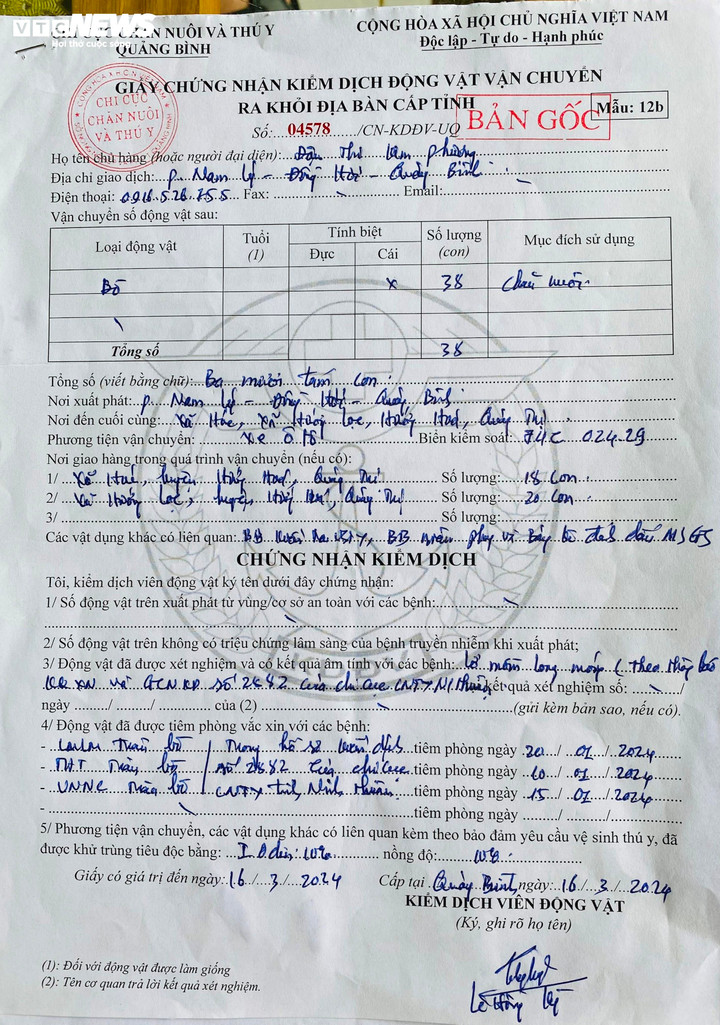 VTC NEWS
Nơi thơ cuộc sống
CHI CỤC CHĂN NUÔI VÀ THÚ Y
QUẢNG BÌNH
CỘNG HÒA XÃ HỘI CHỦ NGHĨA VIỆT NAM
Độc lập - Tự do - Hạnh phúc
GIẤY CHỨNG NHẬN KIỂM DỊCH ĐỘNG VẬT VẬN CHUYỂN
RA KHỎI ĐỊA BÀN CẤP TỈNH
CHI CỤC
CHĂN NUÔI
VÀ THÚ Y
BẢN GỐC
Mẫu: 12b
Số: 04578 /CN-KDĐV-UQ
Họ tên chủ hàng (hoặc người đại diện): Đậu Thị Lam Phương
Địa chỉ giao dịch: P. Nam Lý - Đồng Hới - Quảng Bình
Điện thoại: 0916.526.755 Fax: Email:
Vận chuyển số động vật sau:
Loại động vật Tuổi (1) Tính biệt Số lượng (con) Mục đích sử dụng
Đực Cái
Bò x 38 Chăn nuôi
Tổng số 38
Tổng số (viết bằng chữ): Ba mươi tám con
Nơi xuất phát: P. Nam Lý - Đồng Hới - Quảng Bình
Nơi đến cuối cùng: Xã Húc, Xã Hướng Lộc, Hướng Hoá, Quảng Trị
Phương tiện vận chuyển: Xe ô tô Biển kiểm soát: 74C 024.29
Nơi giao hàng trong quá trình vận chuyển (nếu có):
1/ Xã Húc, huyện Hướng Hoá, Quảng Trị Số lượng: 18 con
2/ Xã Hướng Lộc, huyện Hướng Hoá, Quảng Trị Số lượng: 20 con
3/ Số lượng:
Các vật dụng khác có liên quan: BB
CHỨNG NHẬN KIỂM DỊCH
Tôi, kiểm dịch viên động vật ký tên dưới đây chứng nhận:
1/ Số động vật trên xuất phát từ vùng/cơ sở an toàn với các bệnh:
2/ Số động vật trên không có triệu chứng lâm sàng của bệnh truyền nhiễm khi xuất phát;
3/ Động vật đã được xét nghiệm và có kết quả âm tính với các bệnh: Lở mồm long móng (Theo thông báo
KQXN và GCNKD số 2482 của chi cục CNTY N.Thuận kết quả xét nghiệm số: /
ngày / / của (2) (gửi kèm bản sao, nếu có).
4/ Động vật đã được tiêm phòng vắc xin với các bệnh:
- LMLM Trâu bò Trong hồ sơ kiểm dịch tiêm phòng ngày 20 / 01 / 2024
- THT Trâu bò số 2482 của chi cục tiêm phòng ngày 10 / 01 / 2024
- VDNC Trâu bò CNTY tỉnh Ninh Thuận tiêm phòng ngày 15 / 01 / 2024
- tiêm phòng ngày / /
5/ Phương tiện vận chuyển, các vật dụng khác có liên quan kèm theo bảo đảm yêu cầu vệ sinh thú y, đã
được khử trùng tiêu độc bằng: nồng độ:
Giấy có giá trị đến ngày: 16 / 3 / 2024
Cấp tại Quảng Bình, ngày: 16 / 3 / 2024
KIỂM DỊCH VIÊN ĐỘNG VẬT
(Ký, ghi rõ họ tên)
(1): Đối với động vật được làm giống
(2): Tên cơ quan trả lời kết quả xét nghiệm.
Lê Hồng